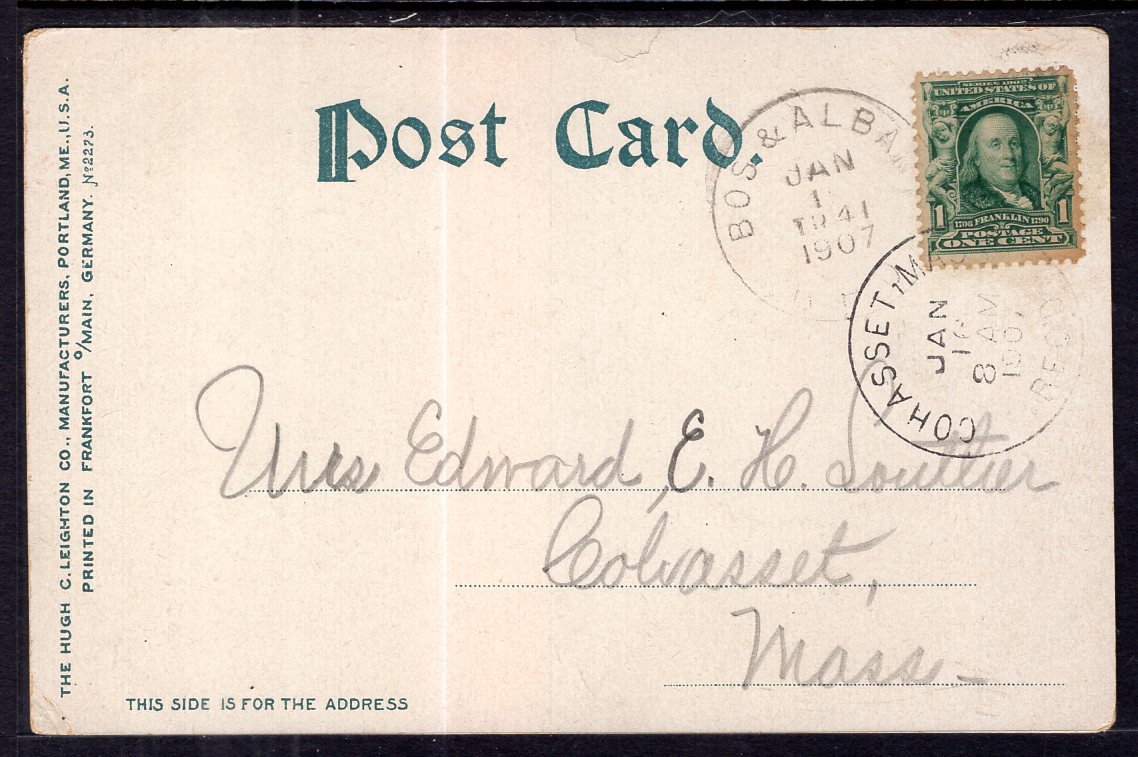 THE HUGH C. LEIGHTON CO., MANUFACTURERS, PORTLAND, ME., U.S.A.
PRINTED IN FRANKFORT O/MAIN, GERMANY. No 2273.
Post Card.
BOS. & ALBA
JAN
1
TR 41
1907
SERIES 1902
UNITED STATES OF
AMERICA
1 1706 FRANKLIN 1790 1
POSTAGE
ONE CENT
COHASSET, MAS
JAN
8 AM
1907
REC'D
Mrs Edward E. H.
Cohasset,
Mass
THIS SIDE IS FOR THE ADDRESS